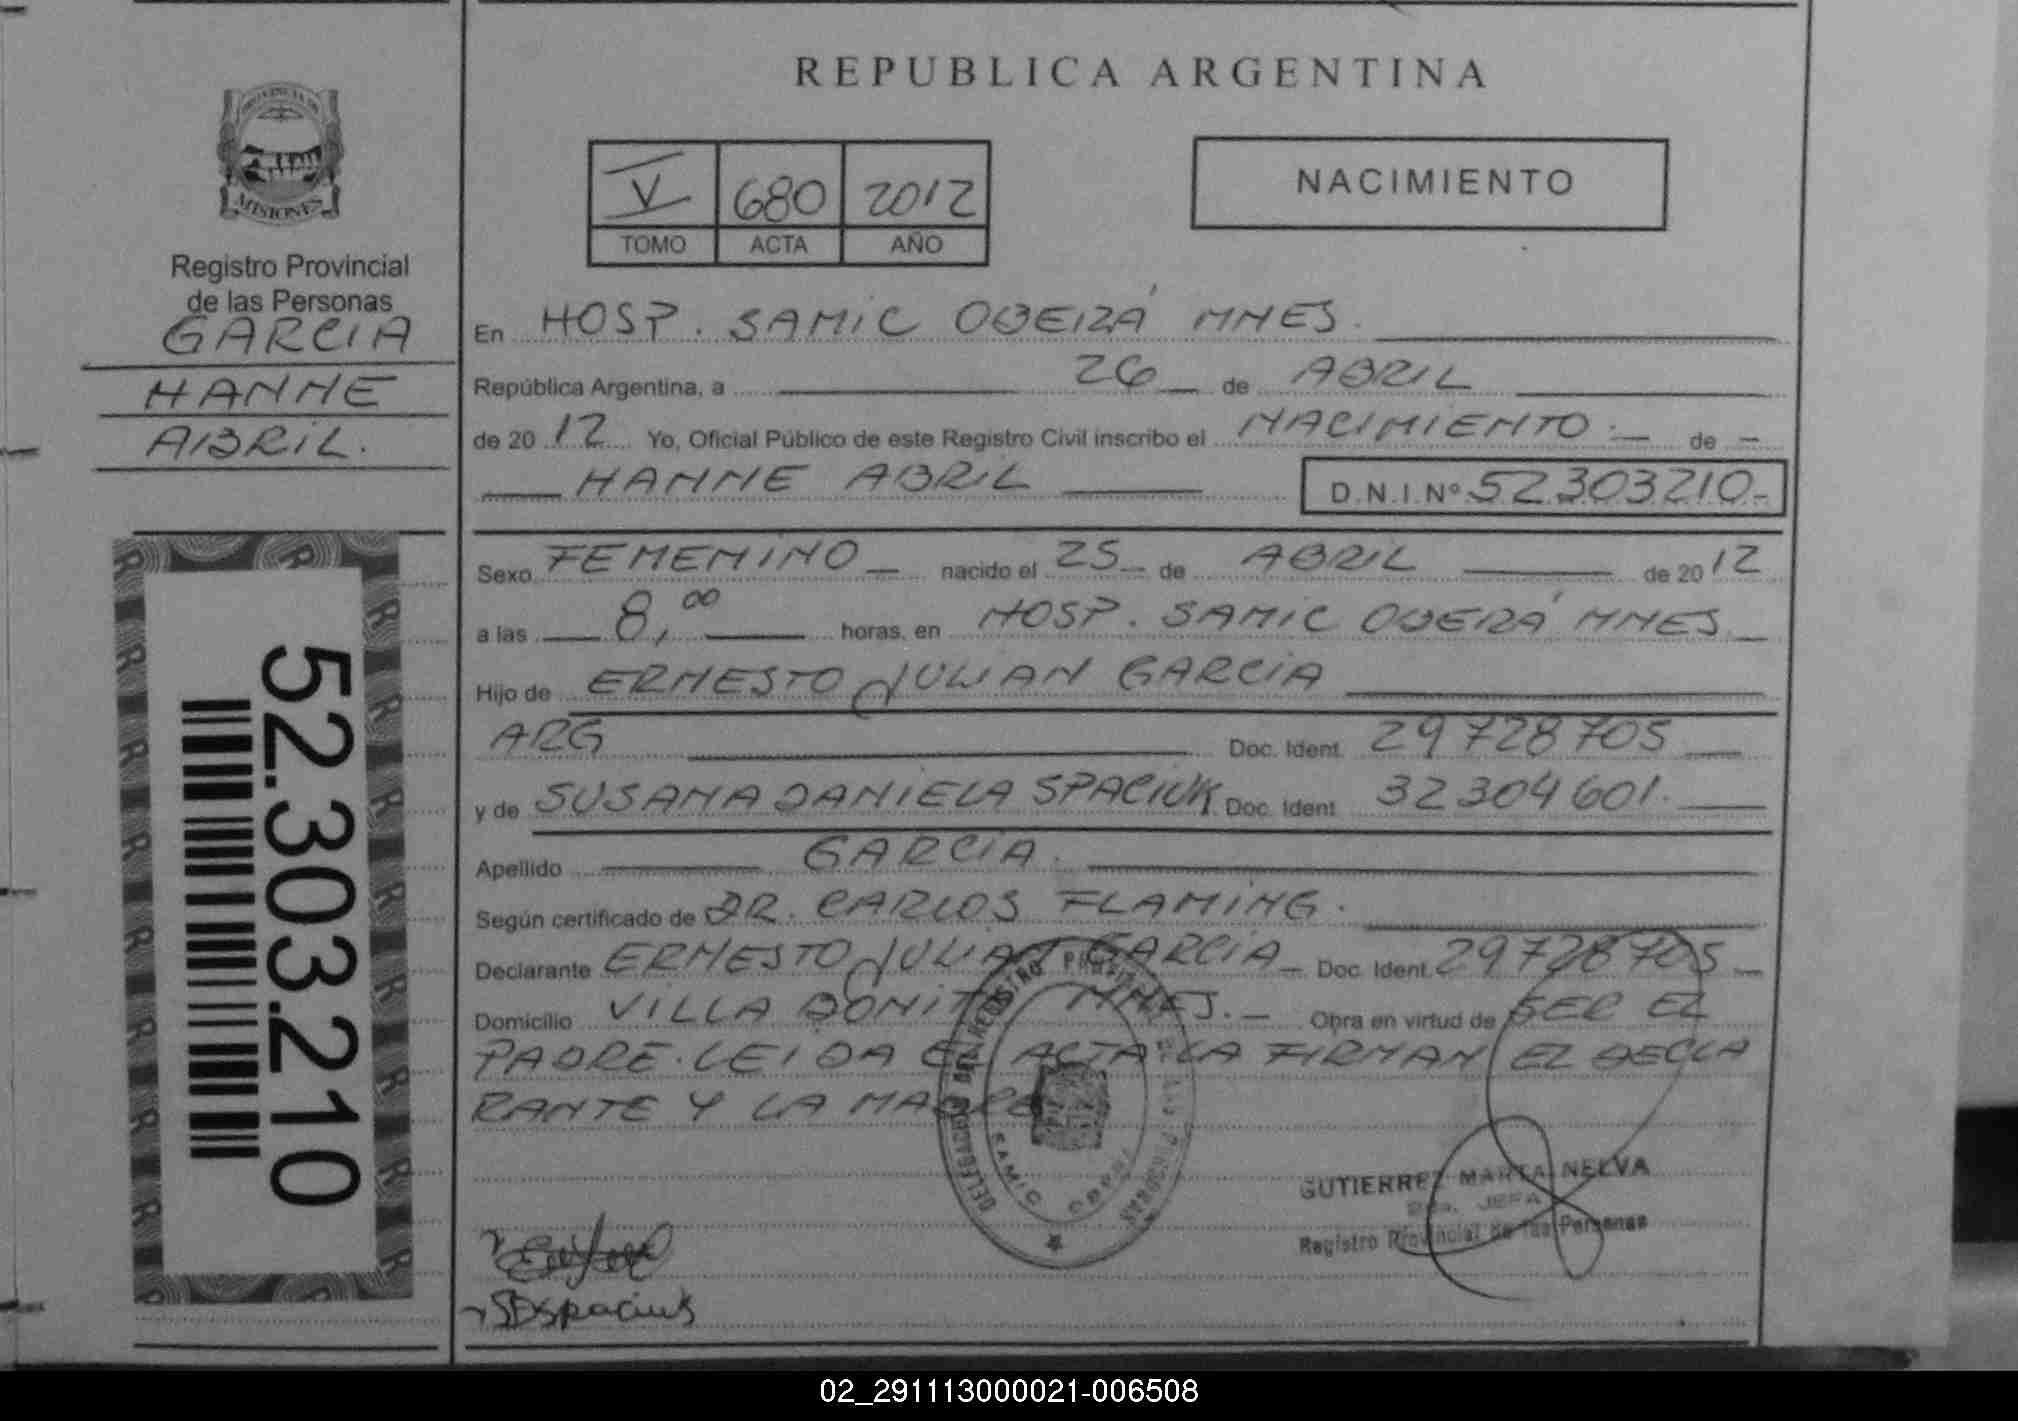 REPUBLICA ARGENTINA
PROVINCIA DE
MISIONES
Registro Provincial
de las Personas
GARCIA
HANNE
ABRIL.
52.303.210
V 680 2012
TOMO ACTA AÑO
NACIMIENTO
En HOSP. SAMIC OBERÁ MNES.
República Argentina, a 26 de ABRIL
de 20 12 Yo, Oficial Público de este Registro Civil inscribo el NACIMIENTO. de
HANNE ABRIL D.N.I Nº 52303210-
Sexo FEMENINO nacido el 25 de ABRIL de 20 12
a las 8,00 horas, en HOSP. SAMIC OBERÁ MNES
Hijo de ERNESTO JULIAN GARCIA
ARG Doc. Ident. 29728705
y de SUSANA DANIELA SPACIUK Doc. Ident 32304601.
Apellido GARCIA.
Según certificado de DR. CARLOS FLAMING.
Declarante ERNESTO JULIAN GARCIA Doc. Ident. 29728705
Domicilio VILLA BONITA MNES. Obra en virtud de SER EL
PADRE. LEIDA EL ACTA LA FIRMAN EL DECLA
RANTE Y LA MADRE
DELEGACION DEL REGISTRO PROVINCIAL DE LAS PERSONAS
SAMIC OBERA
GUTIERREZ MARTA NELVA
JEFA
Registro Provincial de las Personas
SDSpaciuk
02_291113000021-006508